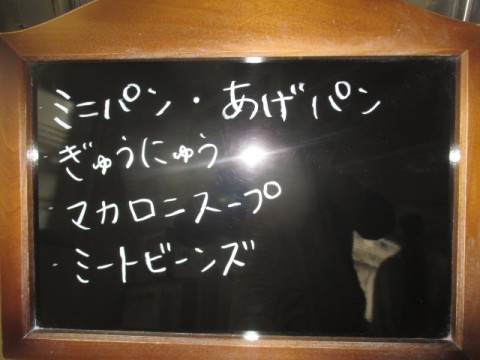 ・ミニパン・あげパン
・ぎゅうにゅう
・マカロニスープ
・ミートビーンズ